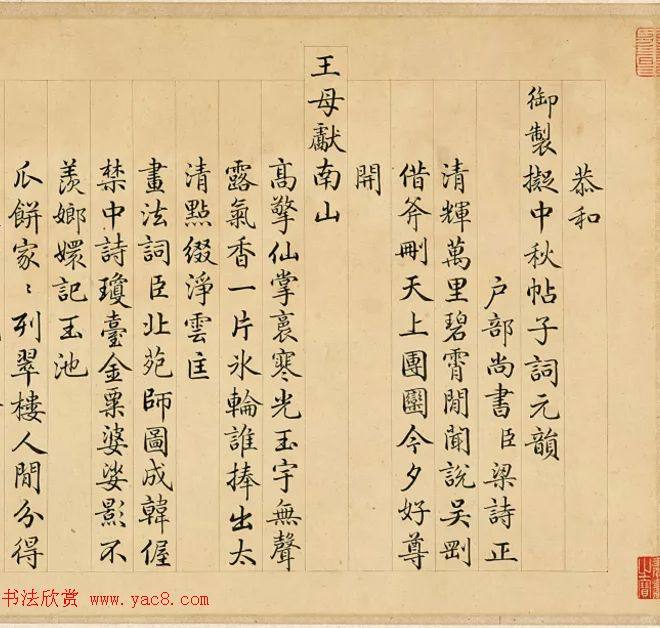 恭和
御製擬中秋帖子詞元韻
户部尚書臣梁詩正
清輝萬里碧霄閒聞說吴剛
借斧刪天上團圞今夕好尊
開
王母獻南山
高擎仙掌裛寒光玉宇無聲
露氣香一片氷輪誰捧出太
清點綴淨雲匡
畫法詞臣北苑師圖成韓偓
禁中詩瓊臺金粟婆娑影不
羡嫏嬛記玉池
瓜餅家〻列翠樓人閒分得
书法欣赏 www.yac8.com